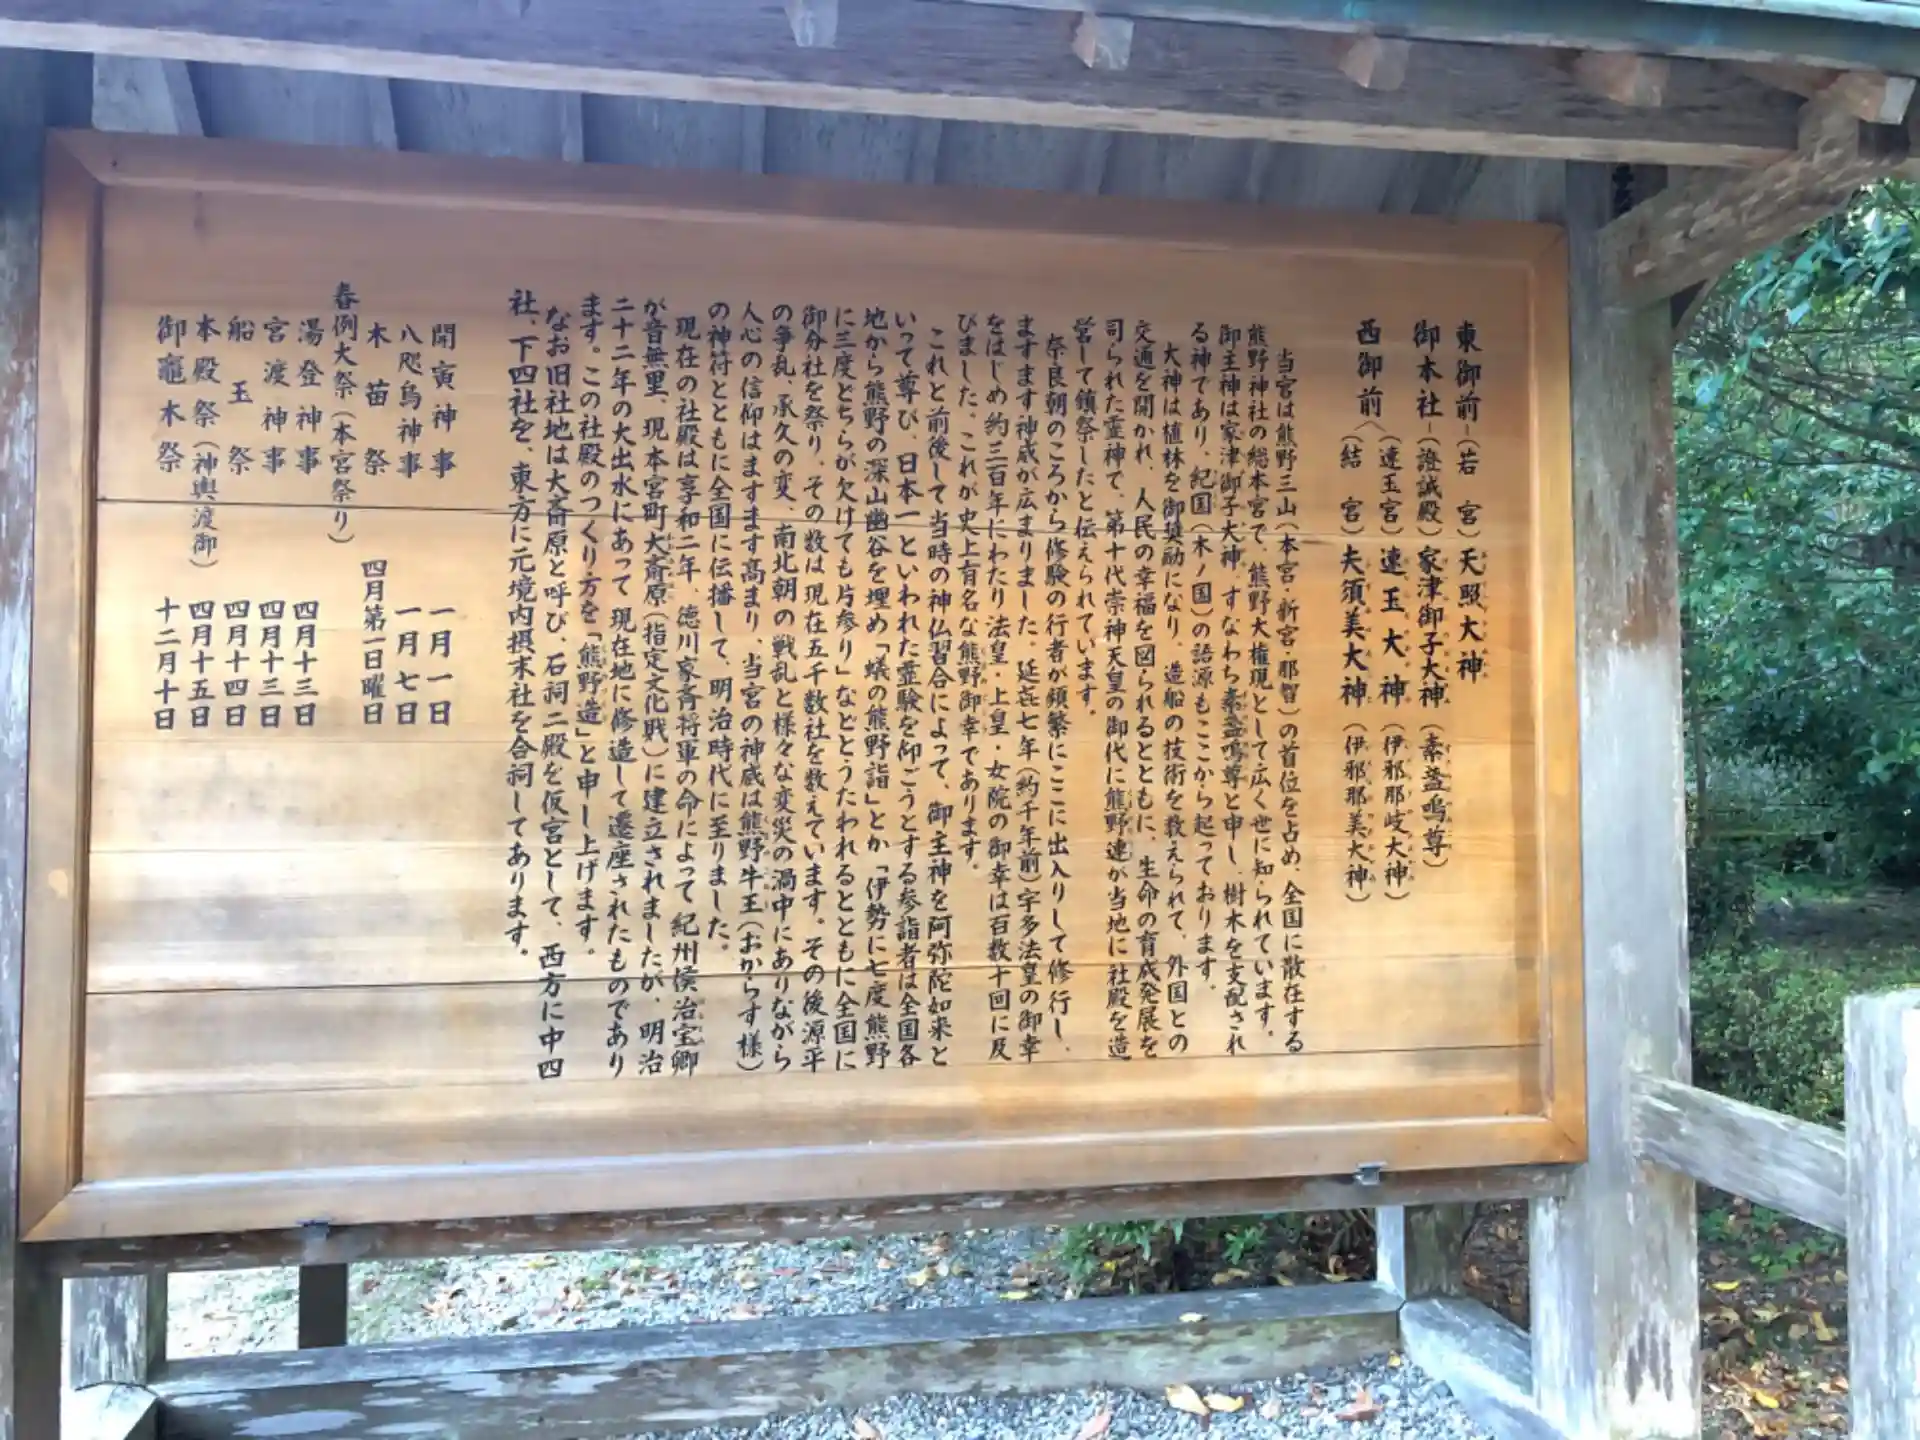 東御前―(若宮)天照大神
御本社―(證誠殿)家津御子大神(素盞嗚尊)
西御前〈(速玉宮)速玉大神(伊邪那岐大神)
(結宮)夫須美大神(伊邪那美大神)
当宮は熊野三山(本宮・新宮・那智)の首位を占め、全国に散在する
熊野神社の総本宮で、熊野大権現として広く世に知られています。
御主神は家津御子大神、すなわち素盞嗚尊と申し、樹木を支配され
る神であり、紀国(木ノ国)の語源もここから起っております。
大神は植林を御奨励になり、造船の技術を教えられて、外国との
交通を開かれ、人民の幸福を図られるとともに、生命の育成発展を
司られた霊神で、第十代崇神天皇の御代に熊野連が当地に社殿を造
営して鎮祭したと伝えられています。
奈良朝のころから修験の行者が頻繁にここに出入りして修行し、
ますます神威が広まりました。延喜七年(約千年前)宇多法皇の御幸
をはじめ約三百年にわたり法皇・上皇・女院の御幸は百数十回に及
びました。これが史上有名な熊野御幸であります。
これと前後して当時の神仏習合によって、御主神を阿弥陀如来と
いって尊び、日本一といわれた霊験を仰ごうとする参詣者は全国各
地から熊野の深山幽谷を埋め「蟻の熊野詣」とか「伊勢に七度熊野
に三度どちらが欠けても片参り」などとうたわれるとともに全国に
御分社を祭り、その数は現在五千数社を数えています。その後源平
の争乱、承久の変、南北朝の戦乱と様々な変災の渦中にありながら
人心の信仰はますます高まり、当宮の神威は熊野牛王(おからす様)
の神符とともに全国に伝播して、明治時代に至りました。
現在の社殿は享和二年、徳川家斉将軍の命によって紀州侯治宝卿
が音無里、現本宮町大斎原(指定文化戝)に建立されましたが、明治
二十二年の大出水にあって現在地に修造して遷座されたものであり
ます。この社殿のつくり方を「熊野造」と申し上げます。
なお旧社地は大斎原と呼び、石祠二殿を仮宮として、西方に中四
社、下四社を、東方に元境内摂末社を合祠してあります。
開寅神事 一月一日
八咫烏神事 一月七日
木苗祭 四月第一日曜日
春例大祭(本宮祭り)
湯登神事 四月十三日
宮渡神事 四月十三日
船玉祭 四月十四日
本殿祭(神輿渡御) 四月十五日
御竈木祭 十二月十日